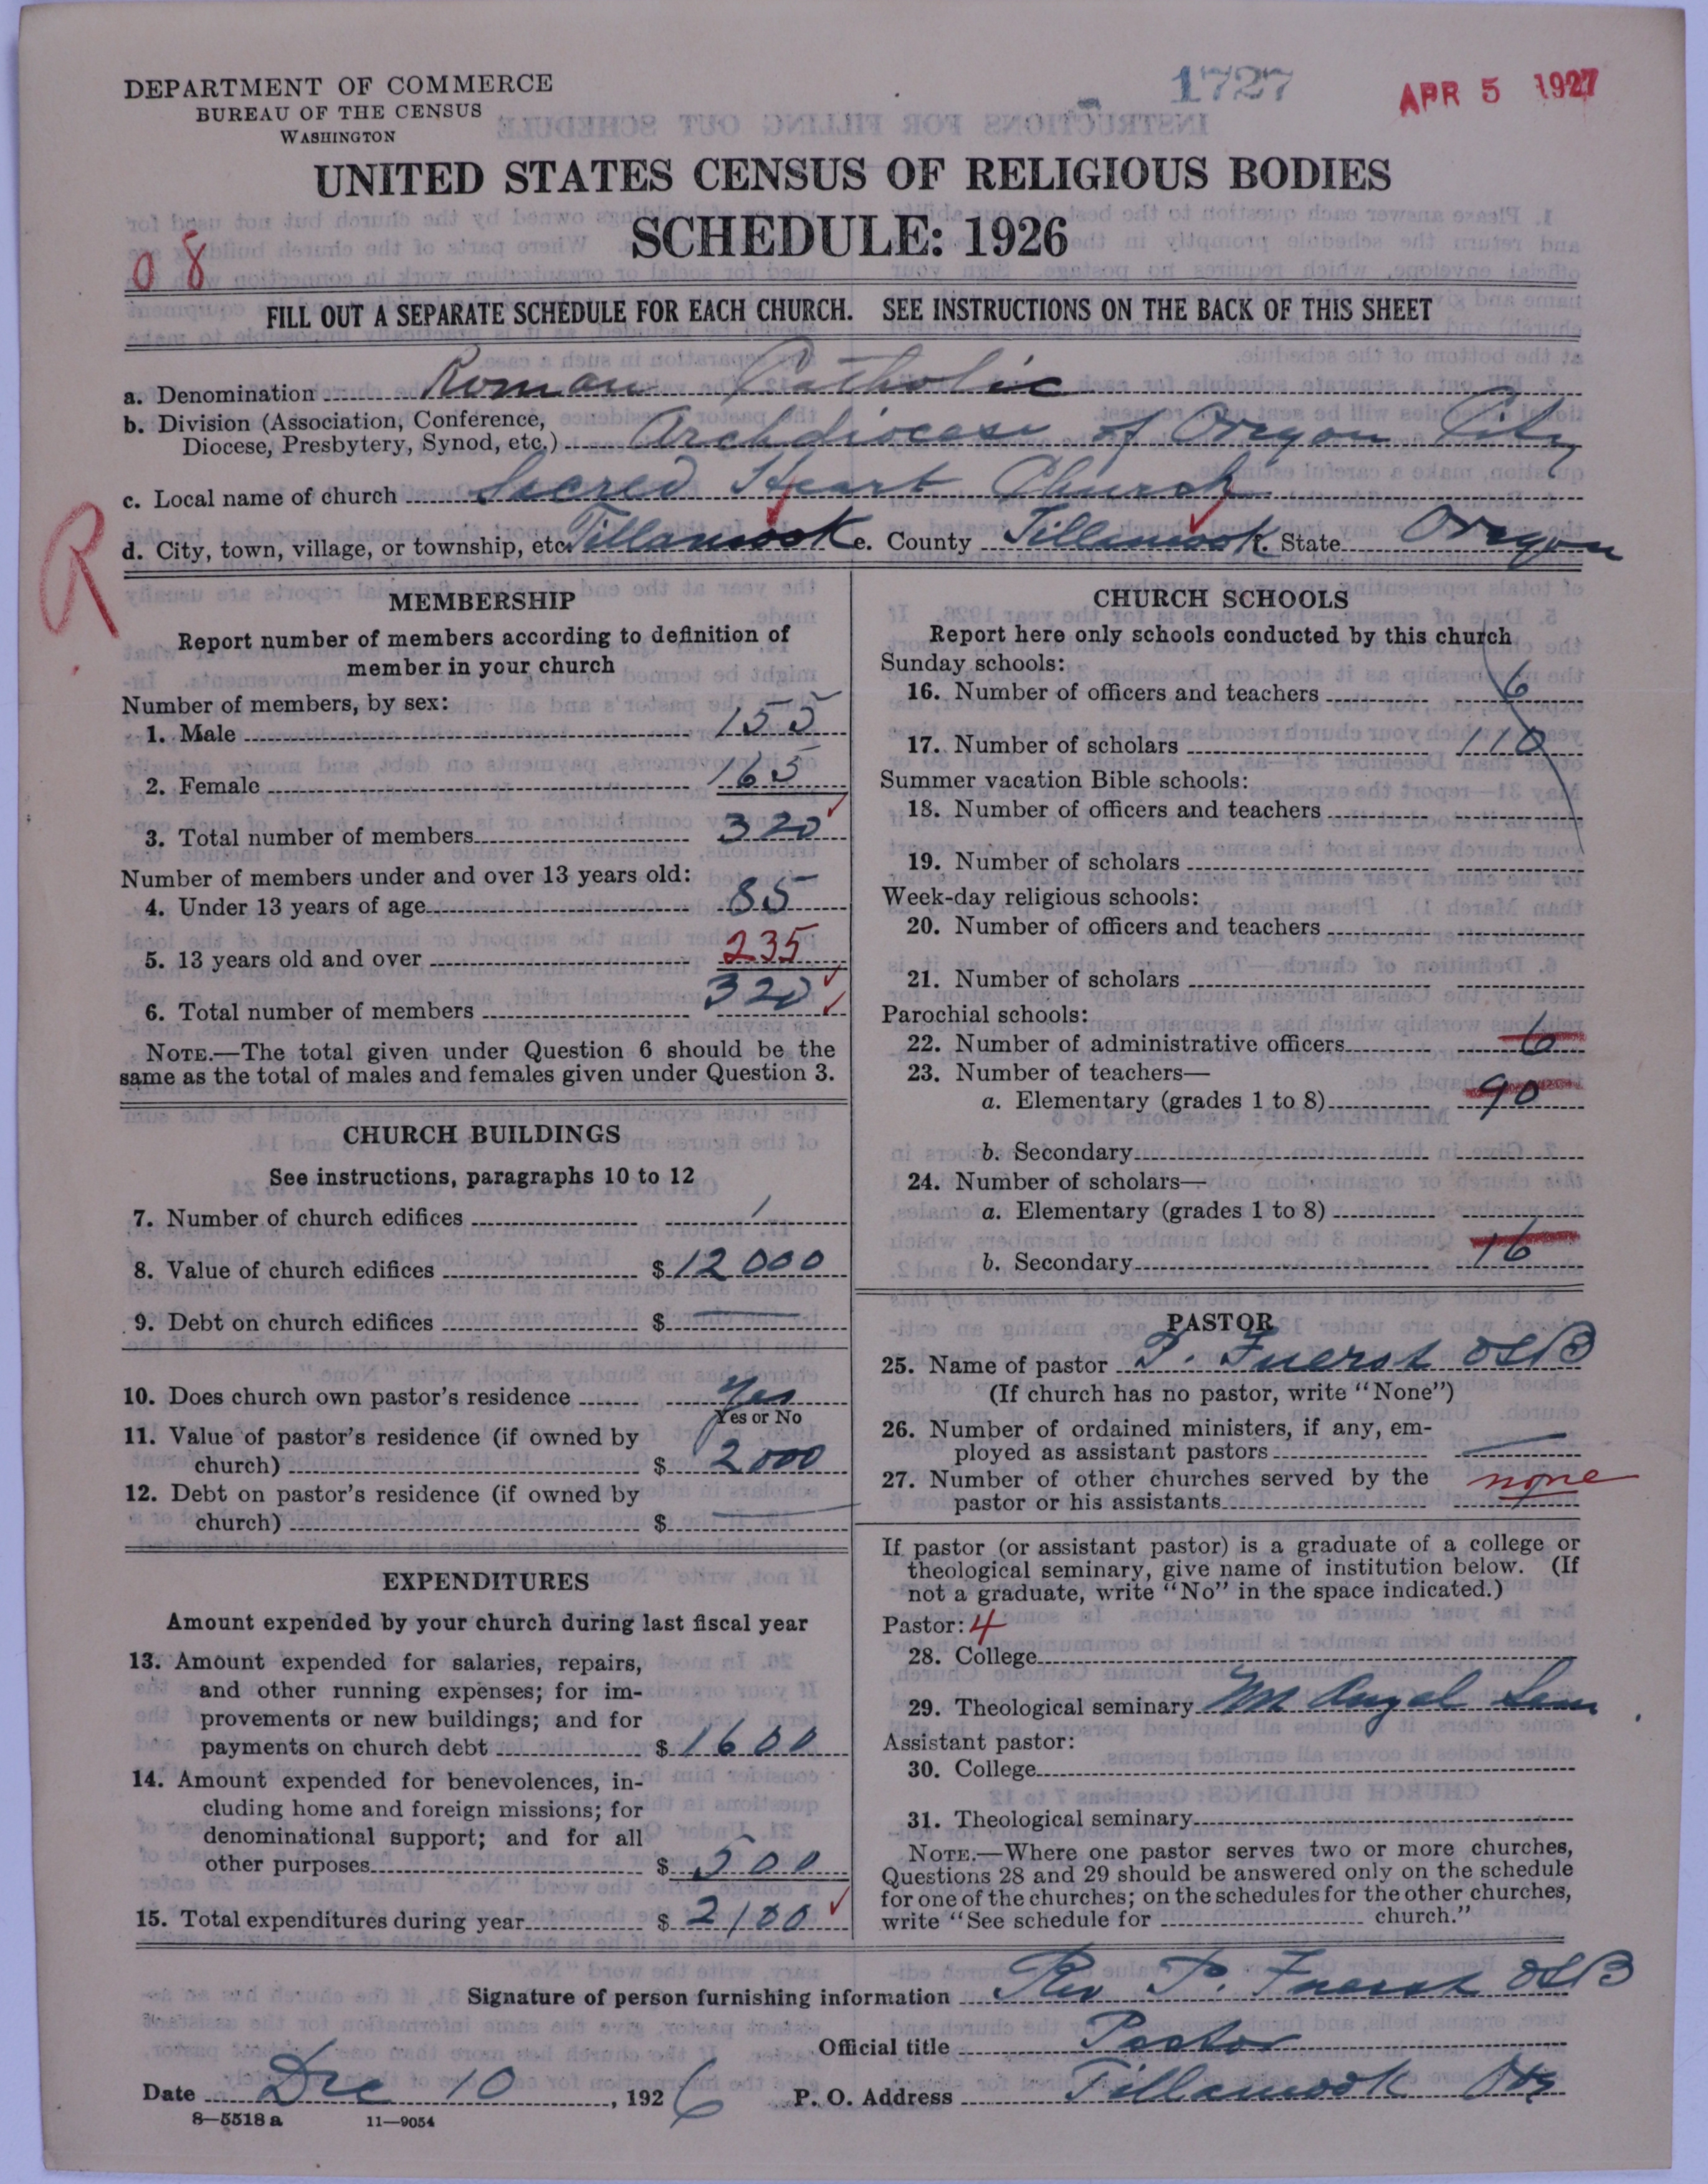 DEPARTMENT OF COMMERCE
BUREAU OF THE CENSUS
WASHINGTON
1727
APR 5 1927
UNITED STATES CENSUS OF RELIGIOUS BODIES
SCHEDULE: 1926
08
FILL OUT A SEPARATE SCHEDULE FOR EACH CHURCH. SEE INSTRUCTIONS ON THE BACK OF THIS SHEET
a. Denomination Roman Catholic
b. Division (Association, Conference,
Diocese, Presbytery, Synod, etc.) Archdiocese of Oregon City
c. Local name of church Sacred Heart Church
R
d. City, town, village, or township, etc. Tillamook e. County Tillamook f. State Oregon
MEMBERSHIP
Report number of members according to definition of
member in your church
Number of members, by sex:
1. Male 155
2. Female 165
3. Total number of members 320
Number of members under and over 13 years old:
4. Under 13 years of age 85
5. 13 years old and over 235
6. Total number of members 320
NOTE.—The total given under Question 6 should be the
same as the total of males and females given under Question 3.
CHURCH BUILDINGS
See instructions, paragraphs 10 to 12
7. Number of church edifices 1
8. Value of church edifices $12000
9. Debt on church edifices $ —
10. Does church own pastor's residence Yes
Yes or No
11. Value of pastor's residence (if owned by
church) $ 2000
12. Debt on pastor's residence (if owned by
church) $ —
EXPENDITURES
Amount expended by your church during last fiscal year
13. Amount expended for salaries, repairs,
and other running expenses; for im-
provements or new buildings; and for
payments on church debt $ 1600
14. Amount expended for benevolences, in-
cluding home and foreign missions; for
denominational support; and for all
other purposes $ 500
15. Total expenditures during year $ 2100
CHURCH SCHOOLS
Report here only schools conducted by this church
Sunday schools:
16. Number of officers and teachers 6
17. Number of scholars 110
Summer vacation Bible schools:
18. Number of officers and teachers
19. Number of scholars
Week-day religious schools:
20. Number of officers and teachers
21. Number of scholars
Parochial schools:
22. Number of administrative officers 6
23. Number of teachers—
a. Elementary (grades 1 to 8) 90
b. Secondary
24. Number of scholars—
a. Elementary (grades 1 to 8)
b. Secondary 16
PASTOR
25. Name of pastor P. Fuerst OSB
(If church has no pastor, write "None")
26. Number of ordained ministers, if any, em-
ployed as assistant pastors —
27. Number of other churches served by the none
pastor or his assistants
If pastor (or assistant pastor) is a graduate of a college or
theological seminary, give name of institution below. (If
not a graduate, write "No" in the space indicated.)
Pastor: 4
28. College
29. Theological seminary Mt Angel Sem
Assistant pastor:
30. College
31. Theological seminary
NOTE.—Where one pastor serves two or more churches,
Questions 28 and 29 should be answered only on the schedule
for one of the churches; on the schedules for the other churches,
write "See schedule for church."
Signature of person furnishing information Rev P. Fuerst OSB
Official title Pastor
Date Dec 10, 1926 P. O. Address Tillamook Ore
8—5518 a 11—9054